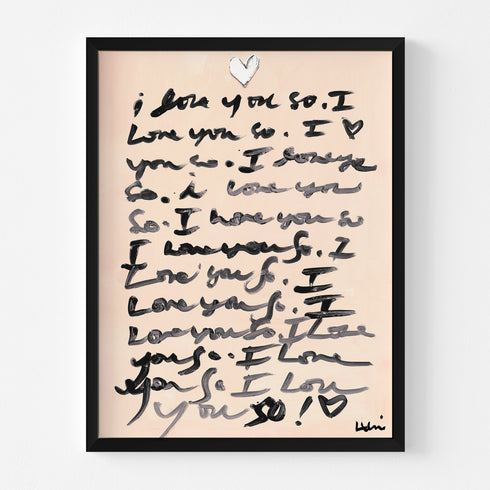 i love you so. I
Love you so. I ♡
you so. I love you
So. i love you
So. I love you so
I Love you So. I
Love you So. I
Love you So. I
Love you So. I Love
you So. I Love
you So I Love
you so! ♡